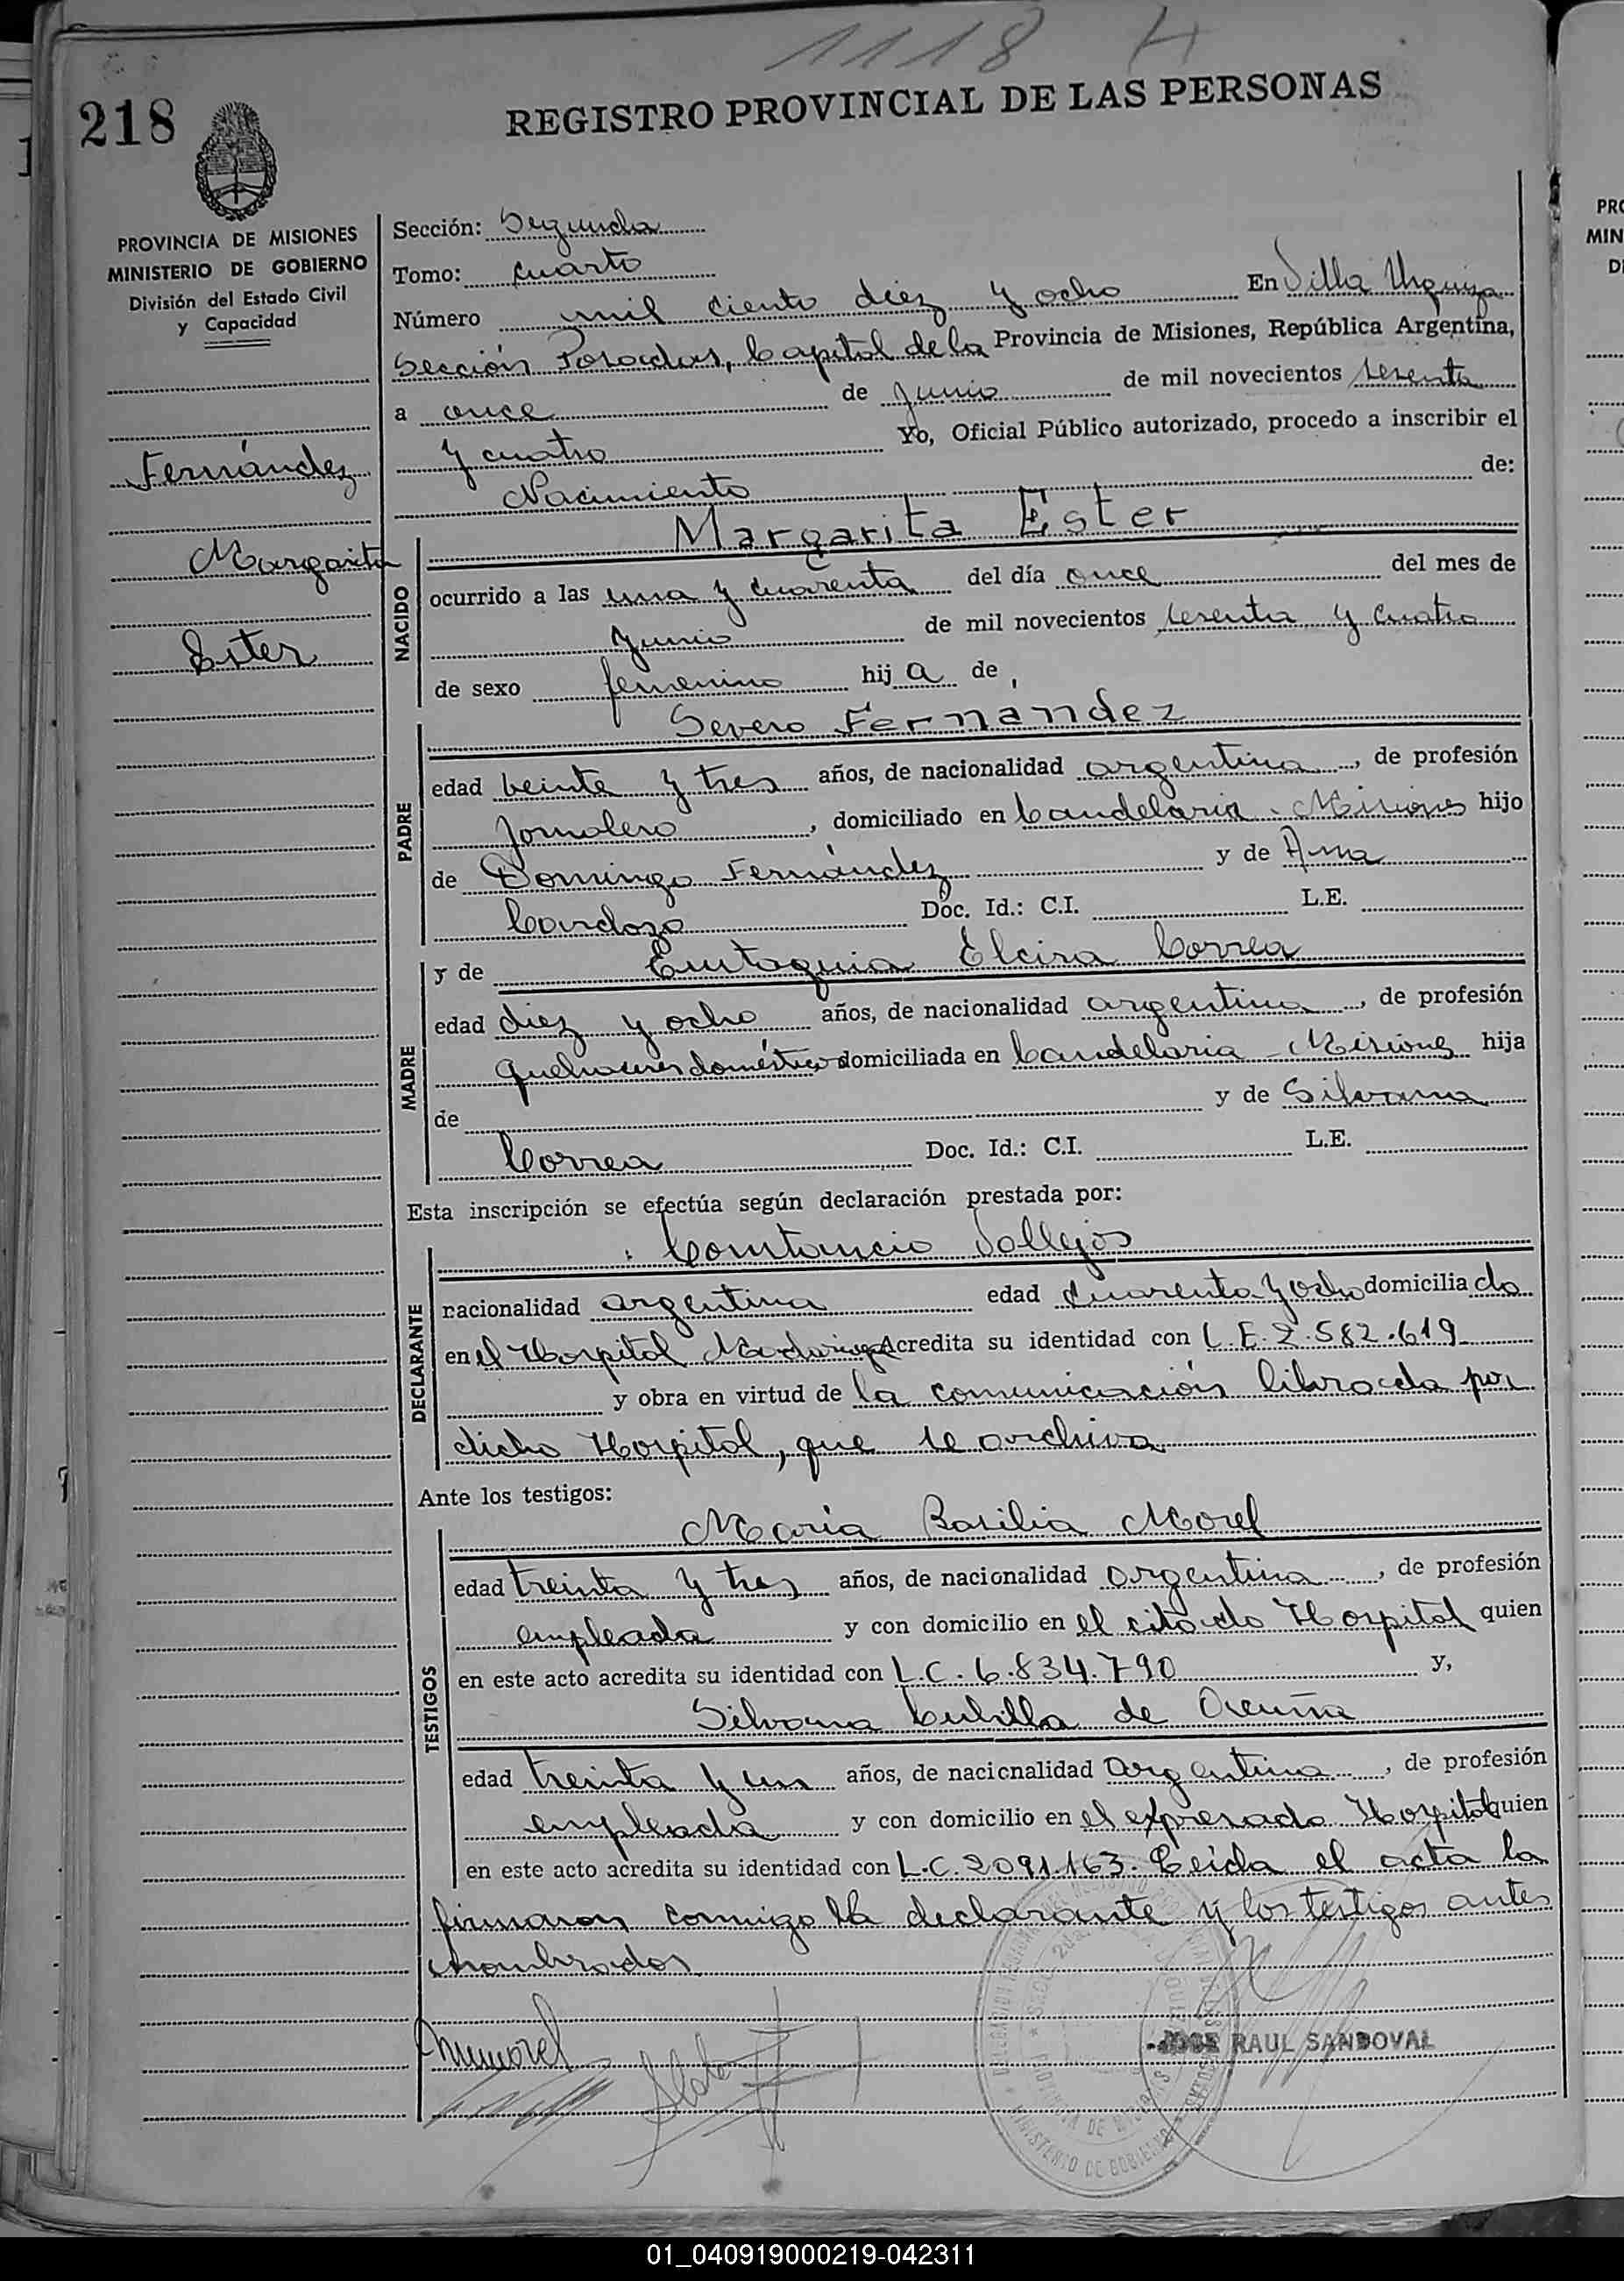 1118 H
218
REGISTRO PROVINCIAL DE LAS PERSONAS
PROVINCIA DE MISIONES
MINISTERIO DE GOBIERNO
División del Estado Civil
y Capacidad
Fernández
Margarita
Ester
Sección: Segunda
Tomo: cuarto
Número mil ciento diez y ocho En Villa Urquiza
Sección Posadas, Capital de la Provincia de Misiones, República Argentina,
a once de Junio de mil novecientos sesenta
y cuatro Yo, Oficial Público autorizado, procedo a inscribir el
Nacimiento de:
NACIDO
Margarita Ester
ocurrido a las una y cuarenta del día once del mes de
Junio de mil novecientos sesenta y cuatro
de sexo femenino hija de,
PADRE
Severo Fernandez
edad beinte y tres años, de nacionalidad argentina, de profesión
Jornalero, domiciliado en Candelaria - Misiones hijo
de Domingo Fernández y de Ana
Cardozo Doc. Id.: C.I. L.E.
MADRE
y de Eustaquia Elcira Correa
edad diez y ocho años, de nacionalidad argentina, de profesión
quehaceres domésticos domiciliada en Candelaria - Misiones hija
de y de Silvana
Correa Doc. Id.: C.I. L.E.
Esta inscripción se efectúa según declaración prestada por:
DECLARANTE
Constancio Vallejos
nacionalidad argentina edad cuarenta y ocho domiciliado
en el Hospital Madariaga Acredita su identidad con L.E. 2.582.619
y obra en virtud de la comunicación librada por
dicho Hospital, que se archiva
Ante los testigos:
TESTIGOS
María Basilia Morel
edad treinta y tres años, de nacionalidad argentina, de profesión
empleada y con domicilio en el citado Hospital quien
en este acto acredita su identidad con L.C. 6.834.790 y,
Silvana Cubilla de Acuña
edad treinta y un años, de nacionalidad argentina, de profesión
empleada y con domicilio en el expresado Hospital quien
en este acto acredita su identidad con L.C. 2091.163. Leida el acta la
firmaron conmigo la declarante y los testigos antes
nombrados
mmorel
JOSE RAUL SANDOVAL
MINISTERIO DE GOBIERNO
PROVINCIA DE MISIONES
01_040919000219-042311